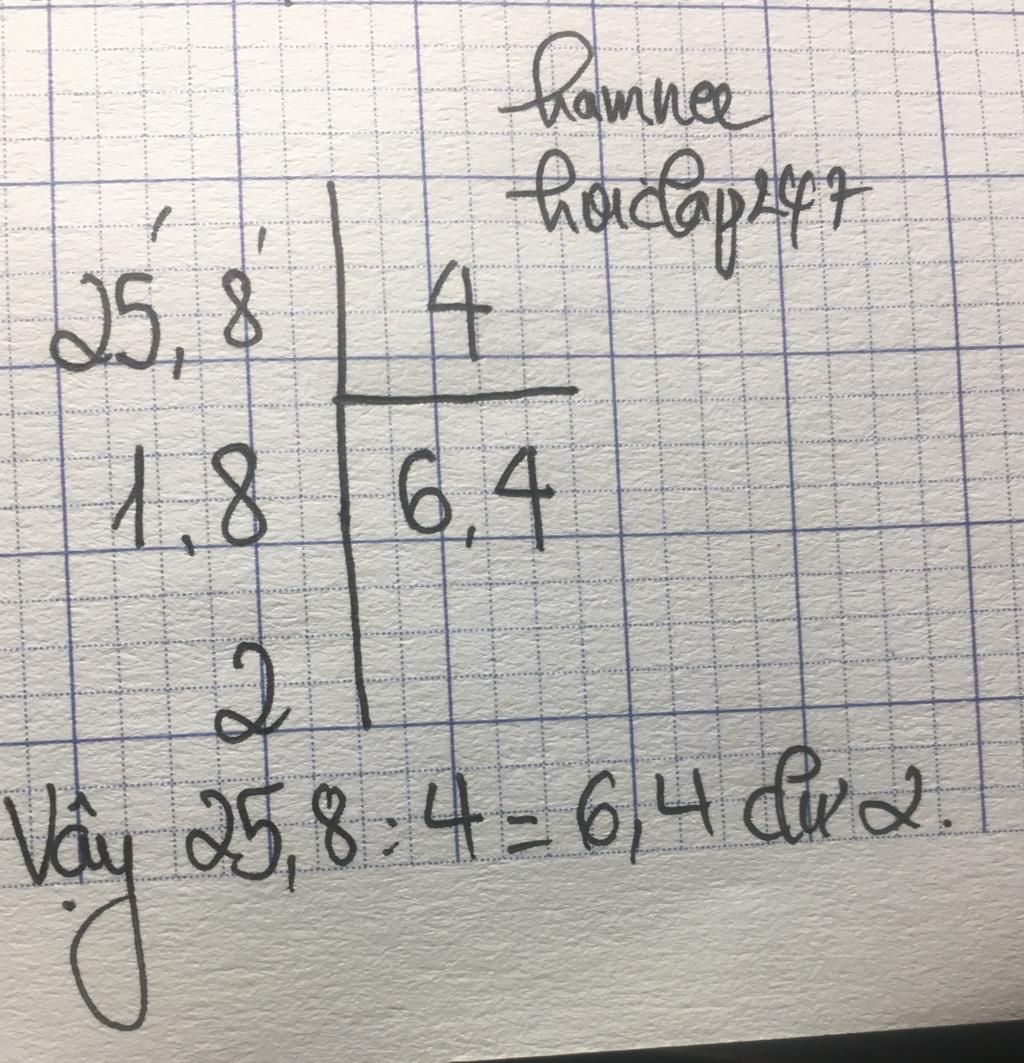 hamnee
hoidap247
25,8 4
1,8 6,4
2
Vậy 25,8 : 4 = 6,4 dư 2.